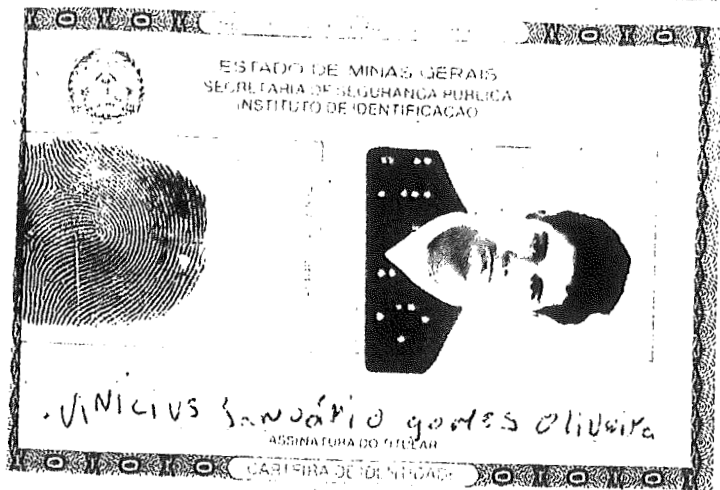 ESTADO DE MINAS GERAIS
SECRETARIA DE SEGURANÇA PÚBLICA
INSTITUTO DE IDENTIFICAÇÃO
VINICIUS Januário gomes Oliveira
ASSINATURA DO TITULAR
CARTEIRA DE IDENTIDADE